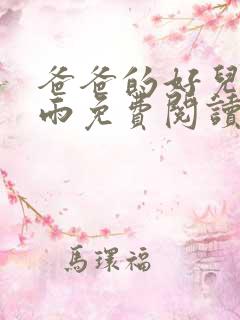 爸爸的好兒
雨免費閱讀
馬環福